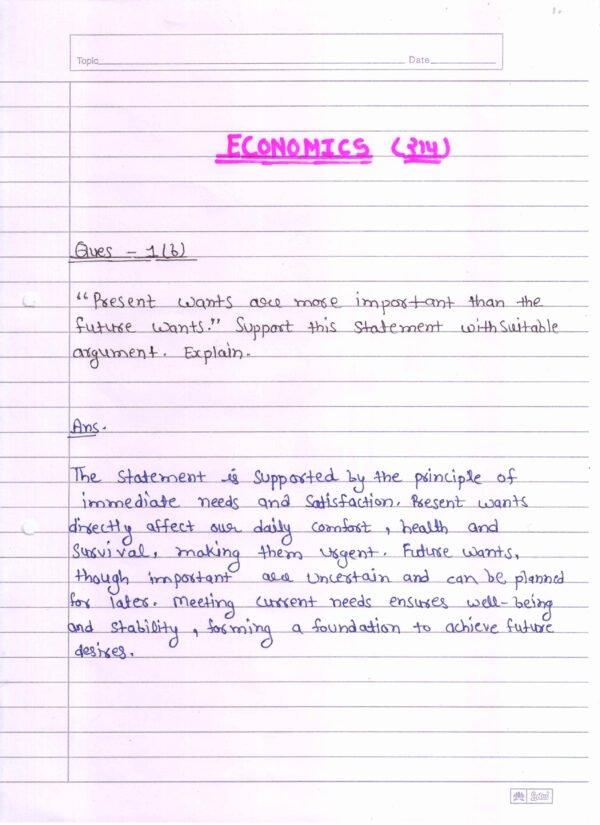 Topic Date
ECONOMICS (214)
Ques - 1(b)
"Present wants are more important than the
future wants." Support this statement with suitable
argument. Explain.
Ans.
The statement is supported by the principle of
immediate needs and satisfaction. Present wants
directly affect our daily comfort, health and
survival, making them urgent. Future wants,
though important are uncertain and can be planned
for later. Meeting current needs ensures well-being
and stability, forming a foundation to achieve future
desires.